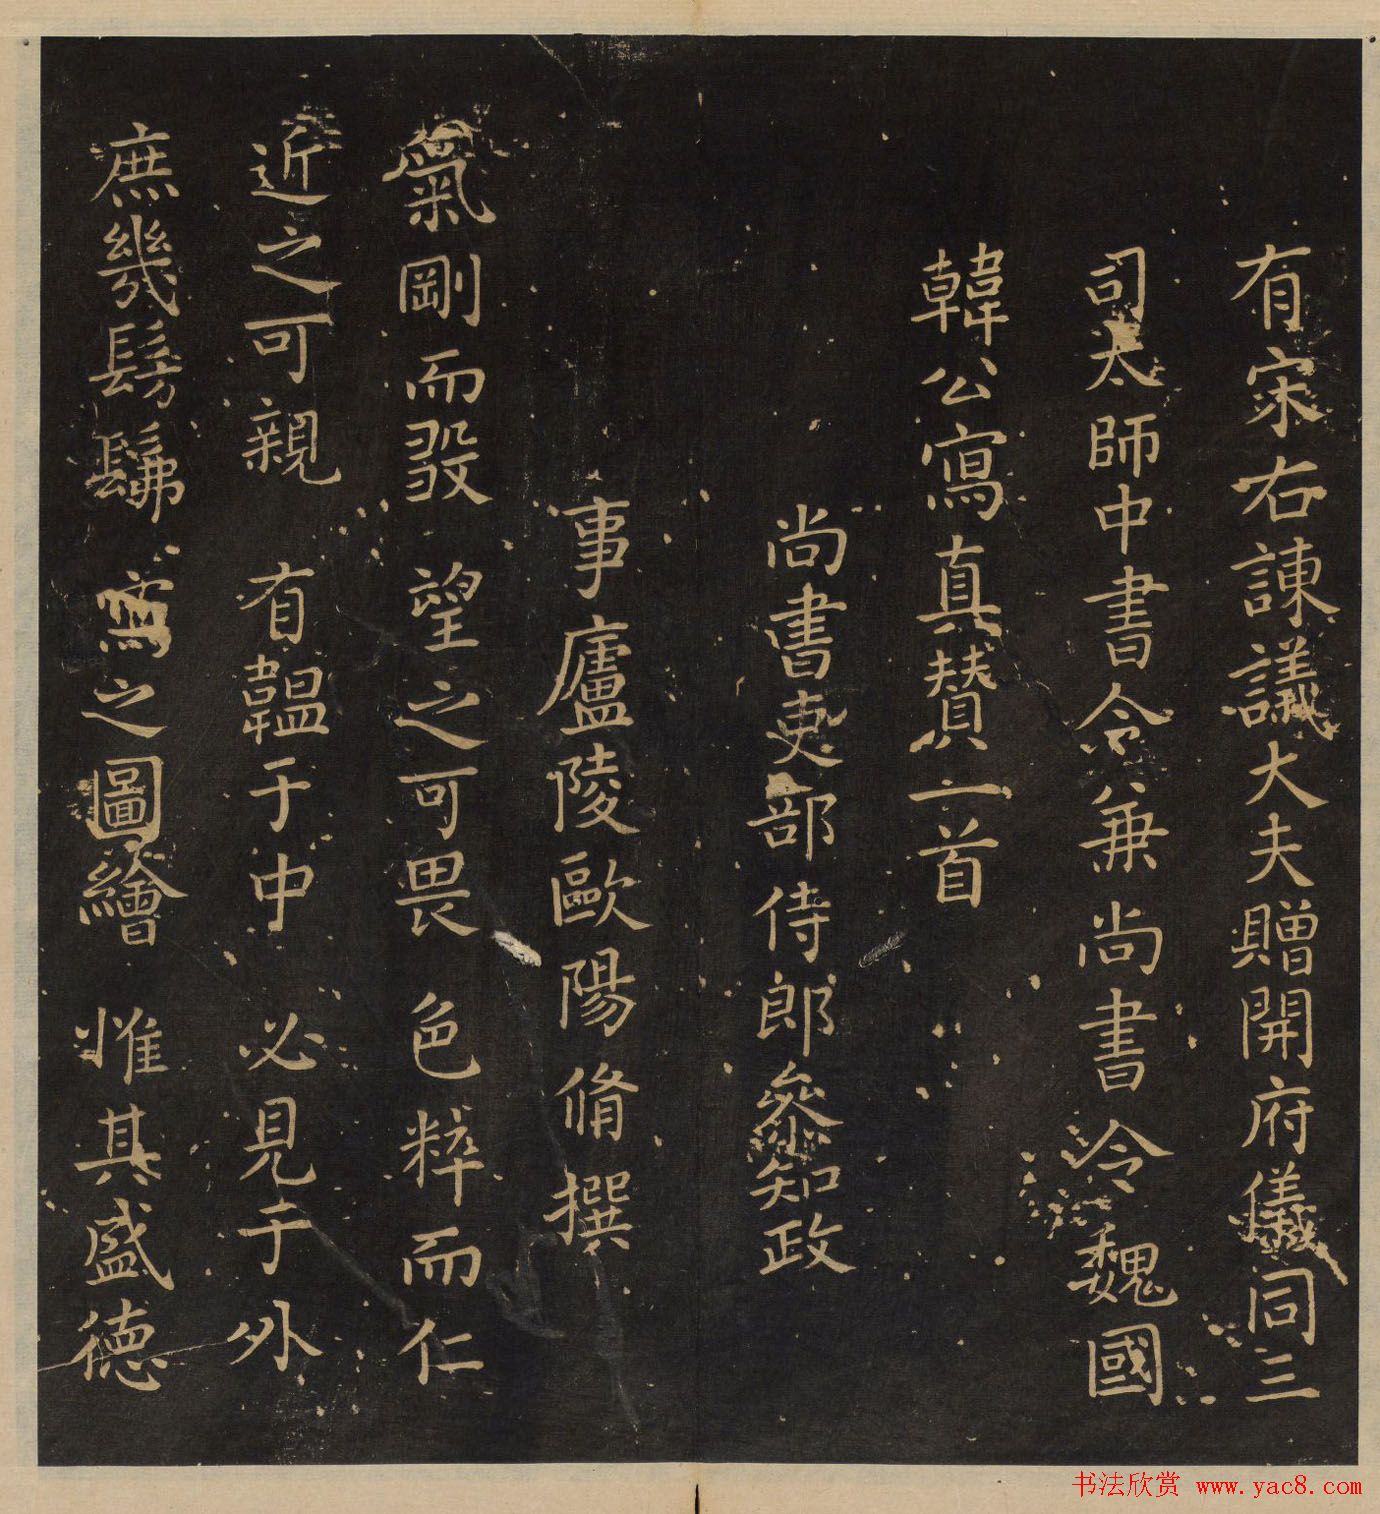 有宋右諫議大夫贈開府儀同三
司太師中書令兼尚書令魏國
韓公寫真贊一首
尚書吏部侍郎參知政
事廬陵歐陽脩撰
氣剛而毅望之可畏色粹而仁
近之可親有韞于中必見于外
庶幾髣髴寓之圖繪惟其盛德
书法欣赏 www.yac8.com